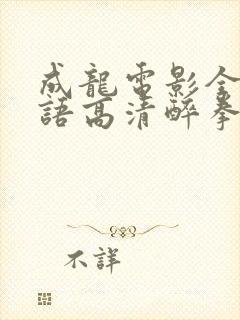 成龍電影全
語高清醉拳
不詳